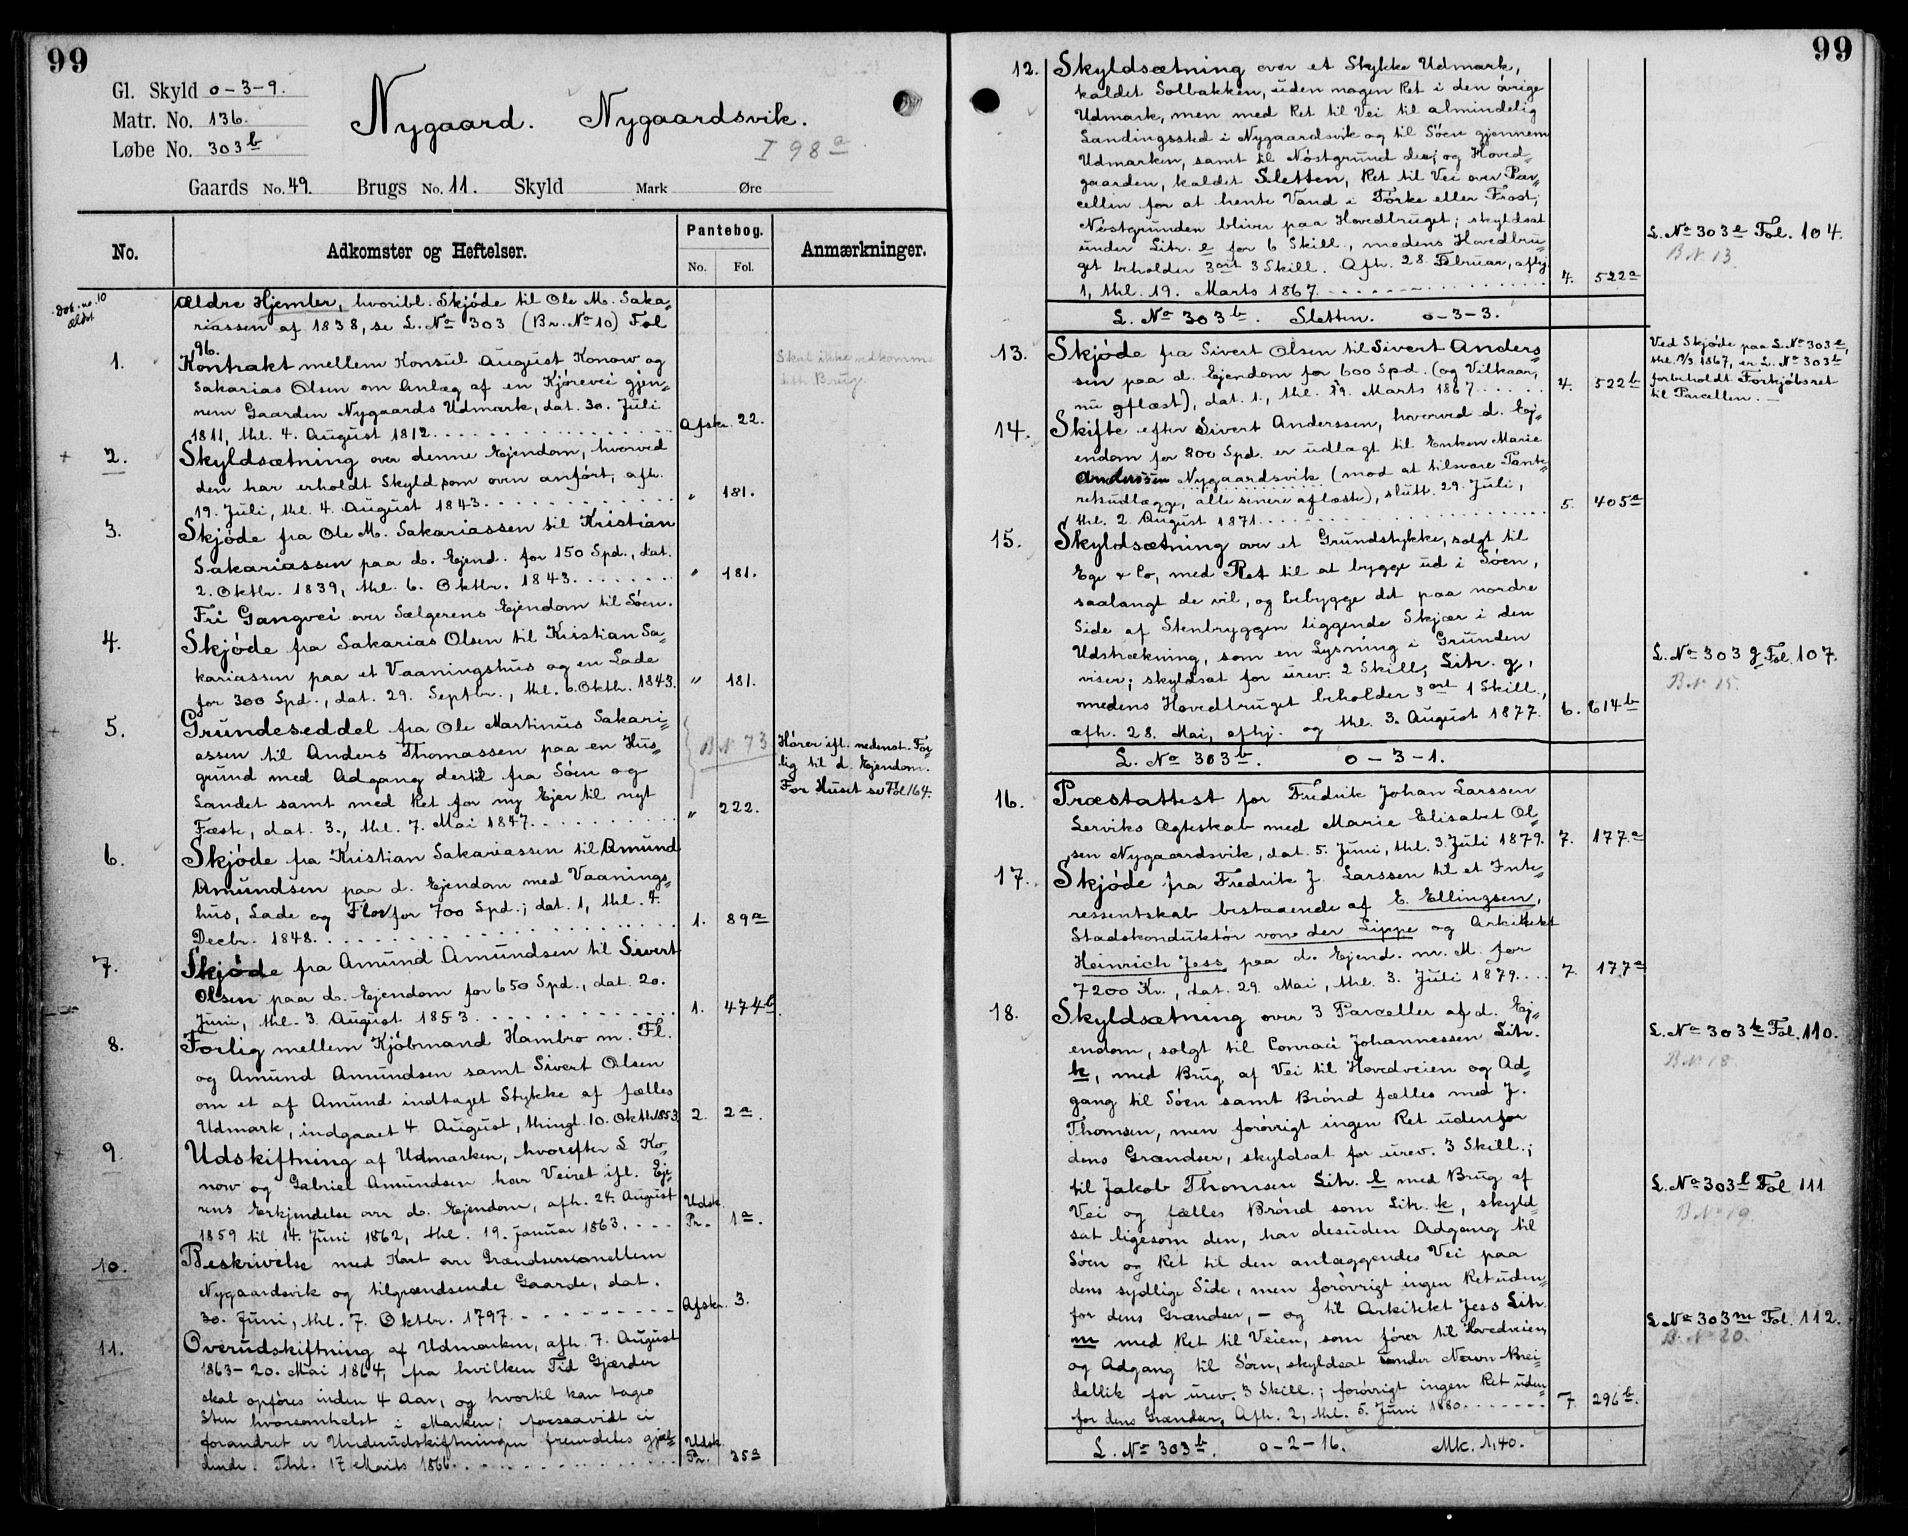 99
Gl. Skyld 0-3-9.
Matr. No. 136.
Løbe No. 303b
Nygaard. Nygaardsvik.
I 98a
Gaards No. 49. Brugs No. 11. Skyld Mark Øre
No.
Adkomster og Heftelser.
Pantebog.
No. Fol.
Anmærkninger.
Ældre Hjemler, hvoribl. Skjøde til Ole M. Saka-
riassen af 1838, se L. No 303 (Br. No 10) Fol
96.
1. Kontrakt mellem Konsul August Konow og
Sakarias Olsen om Anlæg af en Kjørevei gjen-
nem Gaarden Nygaards Udmark, dat. 30. Juli
1811, thl. 4. August 1812. Afskr. 22.
Skal ikke vedkomme
Brug.
2. Skyldsætning over denne Ejendom, hvorved
den har erholdt Skyld som oven anført, afh.
19. Juli, thl. 4. August 1843. " 181.
3. Skjøde fra Ole M. Sakariassen til Kristian
Sakariassen paa d. Ejend. for 150 Spd., dat.
2. Oktbr. 1839, thl. 6. Oktbr. 1843. " 181.
Fri Gangvei over Sælgerens Ejendom til Søen.
4. Skjøde fra Sakarias Olsen til Kristian Sa-
kariassen paa et Vaaningshus og en Lade
for 300 Spd., dat. 29. Septbr., thl. 6. Oktbr. 1843. " 181.
5. Grundeseddel fra Ole Martinus Sakari-
assen til Anders Thomassen paa en Hus-
grund med Adgang dertil fra Søen og
Landet samt med Ret for ny Ejer til nyt
Fæste, dat. 3., thl. 7. Mai 1847. " 222.
B N 73
Hører ifl. nedenst. For-
lig til d. Ejendom.
For Huset se Fol 164.
6. Skjøde fra Kristian Sakariassen til Amund
Amundsen paa d. Ejendom med Vaanings-
hus, Lade og Flor for 700 Spd.; dat. 1, thl. 4.
Decbr. 1848. 1. 89a
7. Skjøde fra Amund Amundsen til Sivert
Olsen paa d. Ejendom for 650 Spd., dat. 20.
Juni, thl. 3. August 1853. 1. 474b
8. Forlig mellem Kjøbmand Hambro m. Fl.
og Amund Amundsen samt Sivert Olsen
om et af Amund indtaget Stykke af fælles
Udmark, indgaaet 4 August, thingl. 10. Oktbr. 1853. 2. 2a.
9. Udskiftning af Udmarken, hvorefter L Ko-
now og Gabriel Amundsen har Veiret ifl. Eje-
rens Erkjendelse over d. Ejendom, afh. 24. August
1859 til 14. Juni 1862, thl. 19. Januar 1863. Udsk. Pr. 1a.
10. Beskrivelse med Kart over Grændserne mellem
Nygaardsvik og tilgrændsende Gaarde, dat.
30. Juni, thl. 7. Oktbr. 1797. Afskr. 3.
11. Overudskiftning af Udmarken, afh. 7. August
1863 - 20. Mai 1864, fra hvilken Tid Gjærder
skal opføres inden 4 Aar, og hvortil kan tages
Sten hvorsomhelst i Marken; forsaavidt ei
forandret er Underudskiftningen fremdeles gjæl-
dende. Thl. 17 Marts 1866. Udsk. Pr. 35a
99
12. Skyldsætning over et Stykke Udmark,
kaldet Solbakken, uden nogen Ret i den øvrige
Udmark, men med Ret til Vei til almindelig
Landingssted i Nygaardsvik og til Søen gjennem
Udmarken, samt til Nøstgrund der; og Hoved-
gaarden, kaldet Sletten, Ret til Vei over Par-
cellen for at hente Vand i Tørke eller Frost;
Nøstgrunden bliver paa Hovedbruget; skyldsat
under Litr. e for 6 Skill., medens Hovedbru-
get beholder 3 ort 3 Skill. Afh. 28. Februar, afhj.
1, thl. 19. Marts 1867. 4. 522a
L. No 303e Fol. 104.
B N. 13.
L. No 303b. Sletten. 0-3-3.
13. Skjøde fra Sivert Olsen til Sivert Anders-
sen paa d. Ejendom for 600 Spd. (og Vilkaar,
nu aflæst), dat. 1., thl. 19. Marts 1867. 4. 522b
Ved Skjøde paa L. No 303e,
thl. 19/3 1867, er L. No 303b
forbeholdt Forkjøbsret
til Parcellen.
14. Skifte efter Sivert Anderssen, hvorved d. Ej-
endom for 800 Spd. er udlagt til Enken Marie
Anderssen Nygaardsvik (mod at tilsvare Pante-
retsudlægg, alle senere aflæste), slutt. 29. Juli,
thl. 2. August 1871. 5. 405a
15. Skyldsætning over et Grundstykke, solgt til
Ege & Co, med Ret til at bygge ud i Søen,
saalangt de vil, og bebygge det paa nordre
Side af Stenbryggen liggende Skjær i den
Udstrækning, som en Lysning i Grunden
viser; skyldsat for urev. 2 Skill, Litr. g,
medens Hovedbruget beholder 3 ort 1 Skill.,
afh. 28. Mai, afhj. og thl. 3. August 1877. 6. 614b
L. No 303g Fol. 107.
B N 15.
L. No 303b. 0-3-1.
16. Præstattest for Fredrik Johan Larssen
Lerviks Ægteskab med Marie Elisabet Ol-
sen Nygaardsvik, dat. 5. Juni, thl. 3. Juli 1879. 7. 177a
17. Skjøde fra Fredrik J. Larssen til et Inte-
ressentskab bestaaende af E. Ellingsen,
Stadskonduktør von der Lippe og Arkitekt
Heinrich Jess paa d. Ejend. m. M. for
7200 Kr., dat. 29. Mai, thl. 3. Juli 1879. 7. 177a
18. Skyldsætning over 3 Parceller af d. Ej-
endom, solgt til Conrad Johannessen Litr.
k, med Brug af Vei til Hovedveien og Ad-
gang til Søen samt Brønd fælles med J.
Thomsen, men forøvrigt ingen Ret udenfor
dens Grændser, skyldsat for urev. 3 Skill.;
til Jakob Thomsen Litr. l med Brug af
Vei og fælles Brønd som Litr. k, skyld-
sat ligesom den, har desuden Adgang til
Søen og Ret til den anlæggendes Vei paa
dens sydlige Side, men forøvrigt ingen Ret uden-
for dens Grændser, - og til Arkitekt Jess Litr.
m med Ret til Veien, som fører til Hovedveien,
og Adgang til Søen, skyldsat under Navn Brei-
dablik for urev. 3 Skill.; forøvrigt ingen Ret uden-
for dens Grændser, Afh. 2, thl. 5. Juni 1880. 7. 296b.
L. No 303k Fol. 110.
B N 18
L. No 303l Fol 111
B No 19.
L. No 303m Fol. 112.
B. No 20.
L. No 303b. 0-2-16. Mk. 1,40.